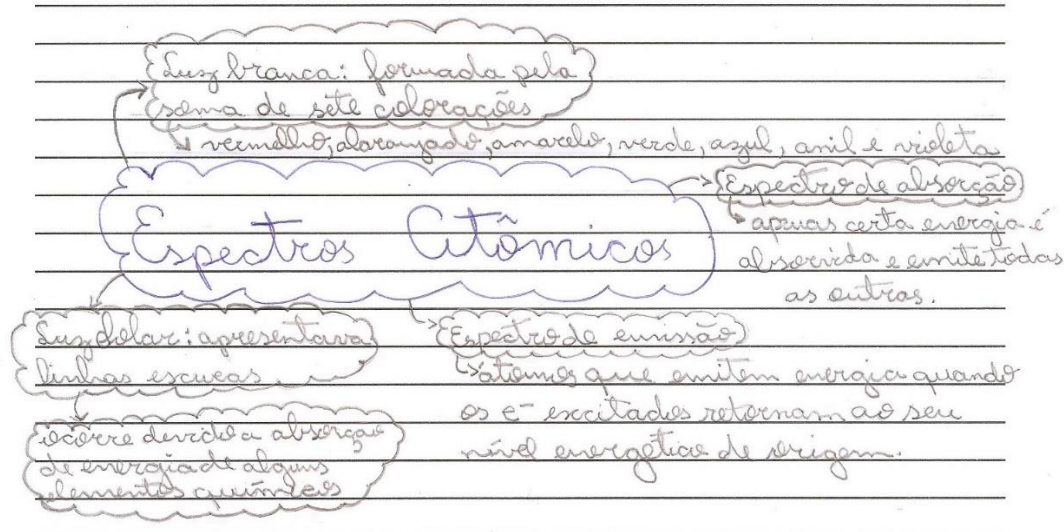 Luz branca: formada pela
soma de sete colorações
vermelho, alaranjado, amarelo, verde, azul, anil e violeta
Espectros Atômicos
Espectro de absorção
apenas certa energia é
absorvida e emite todas
as outras.
Luz solar: apresentava
linhas escuras
ocorre devido a absorção
de energia de alguns
elementos químicos
Espectro de emissão
átomos que emitem energia quando
os e- excitados retornam ao seu
nível energético de origem.